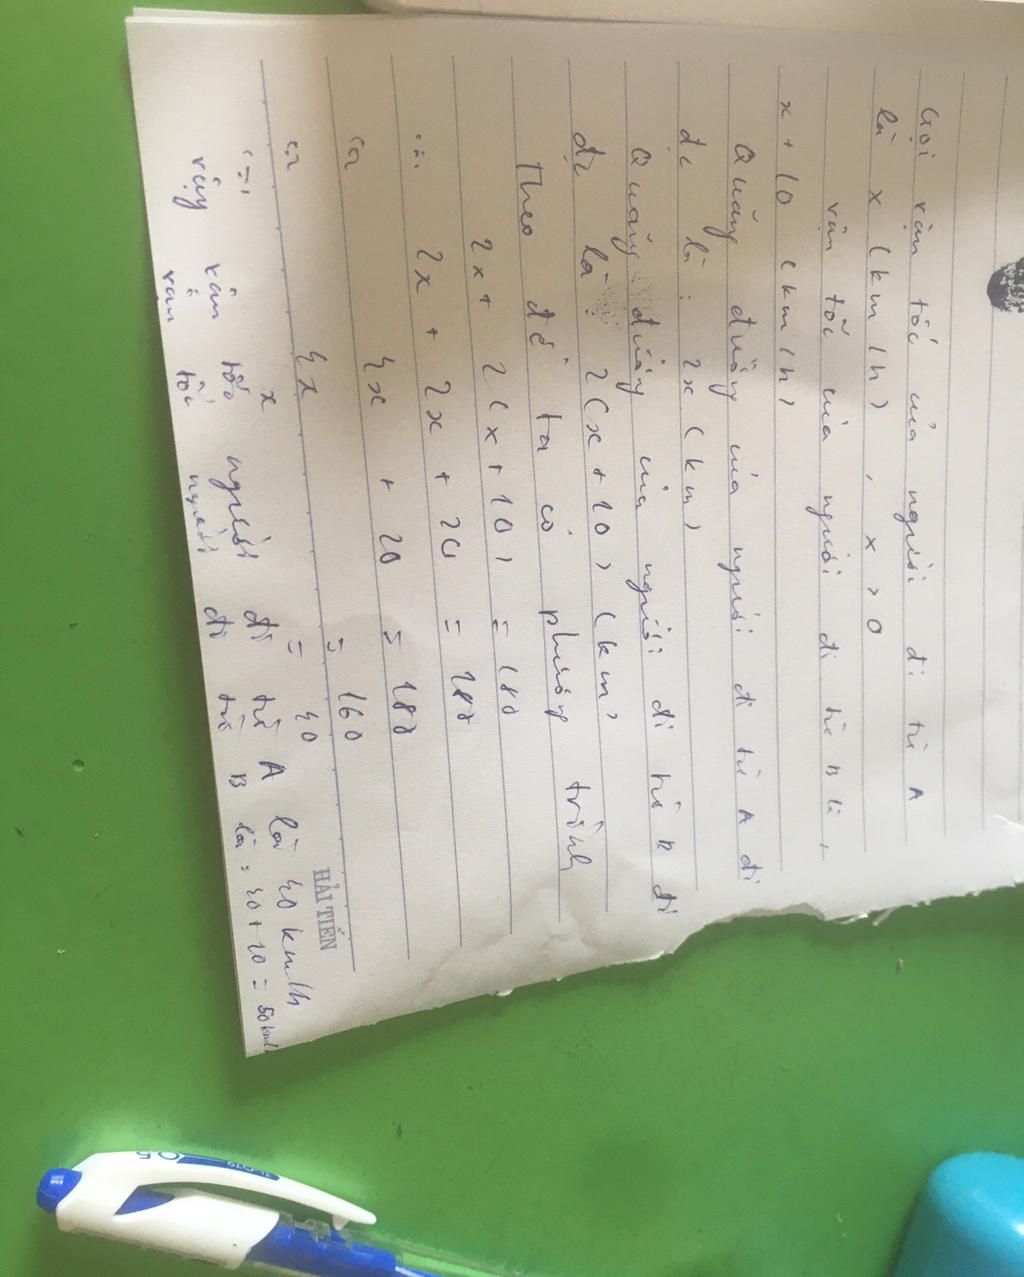 Gọi vận tốc của người đi từ A
là x (km/h) , x > 0
vận tốc của người đi từ B là
x + 10 (km/h)
Quãng đường của người đi từ A đi
đc là : 2x (km)
Quãng đường của người đi từ B đi
đc là : 2(x + 10) (km)
Theo đề ta có phương trình
2x + 2(x + 10) = 180
2x + 2x + 20 = 180
4x + 20 = 180
4x = 160
x = 40
vậy vân tốc người đi từ A là 40 km/h
vân tốc người đi từ B là : 40 + 10 = 50 km/h
HẢI TIẾN